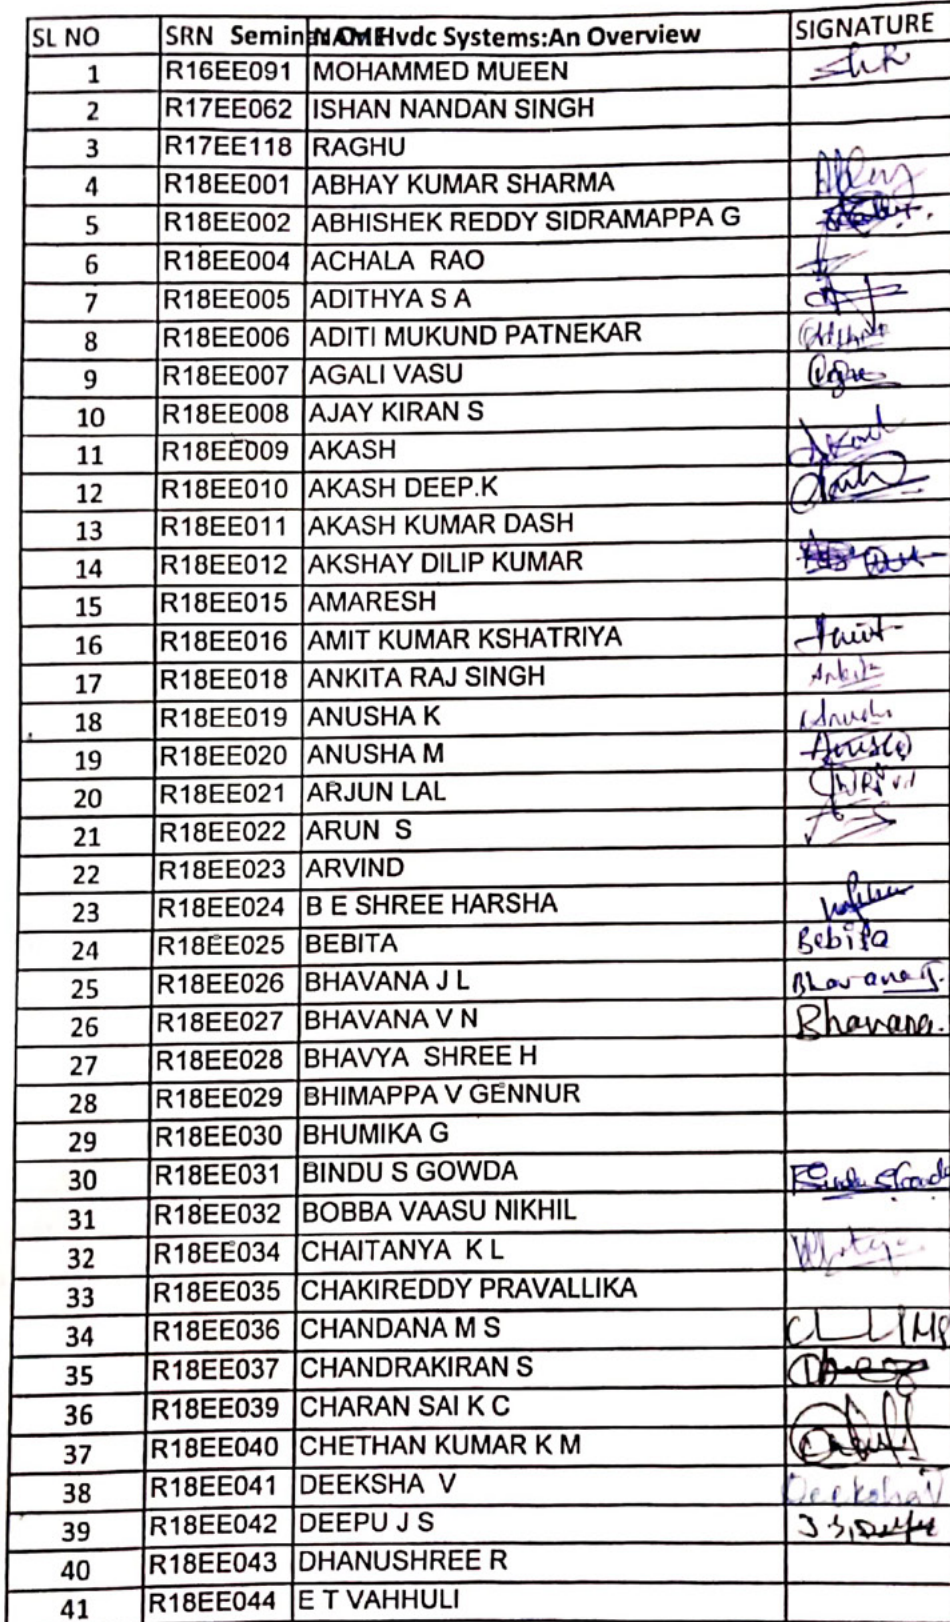 SL NO SRN NAME SIGNATURE
Seminar On Hvdc Systems:An Overview
1 R16EE091 MOHAMMED MUEEN
2 R17EE062 ISHAN NANDAN SINGH
3 R17EE118 RAGHU
4 R18EE001 ABHAY KUMAR SHARMA
5 R18EE002 ABHISHEK REDDY SIDRAMAPPA G
6 R18EE004 ACHALA RAO
7 R18EE005 ADITHYA S A
8 R18EE006 ADITI MUKUND PATNEKAR
9 R18EE007 AGALI VASU
10 R18EE008 AJAY KIRAN S
11 R18EE009 AKASH
12 R18EE010 AKASH DEEP.K
13 R18EE011 AKASH KUMAR DASH
14 R18EE012 AKSHAY DILIP KUMAR
15 R18EE015 AMARESH
16 R18EE016 AMIT KUMAR KSHATRIYA
17 R18EE018 ANKITA RAJ SINGH Ankita
18 R18EE019 ANUSHA K
19 R18EE020 ANUSHA M
20 R18EE021 ARJUN LAL
21 R18EE022 ARUN S
22 R18EE023 ARVIND
23 R18EE024 B E SHREE HARSHA
24 R18EE025 BEBITA Bebita
25 R18EE026 BHAVANA J L Bhavana J.
26 R18EE027 BHAVANA V N Bhavana.
27 R18EE028 BHAVYA SHREE H
28 R18EE029 BHIMAPPA V GENNUR
29 R18EE030 BHUMIKA G
30 R18EE031 BINDU S GOWDA
31 R18EE032 BOBBA VAASU NIKHIL
32 R18EE034 CHAITANYA K L
33 R18EE035 CHAKIREDDY PRAVALLIKA
34 R18EE036 CHANDANA M S
35 R18EE037 CHANDRAKIRAN S
36 R18EE039 CHARAN SAI K C
37 R18EE040 CHETHAN KUMAR K M
38 R18EE041 DEEKSHA V Deeksha V
39 R18EE042 DEEPU J S
40 R18EE043 DHANUSHREE R
41 R18EE044 E T VAHHULI